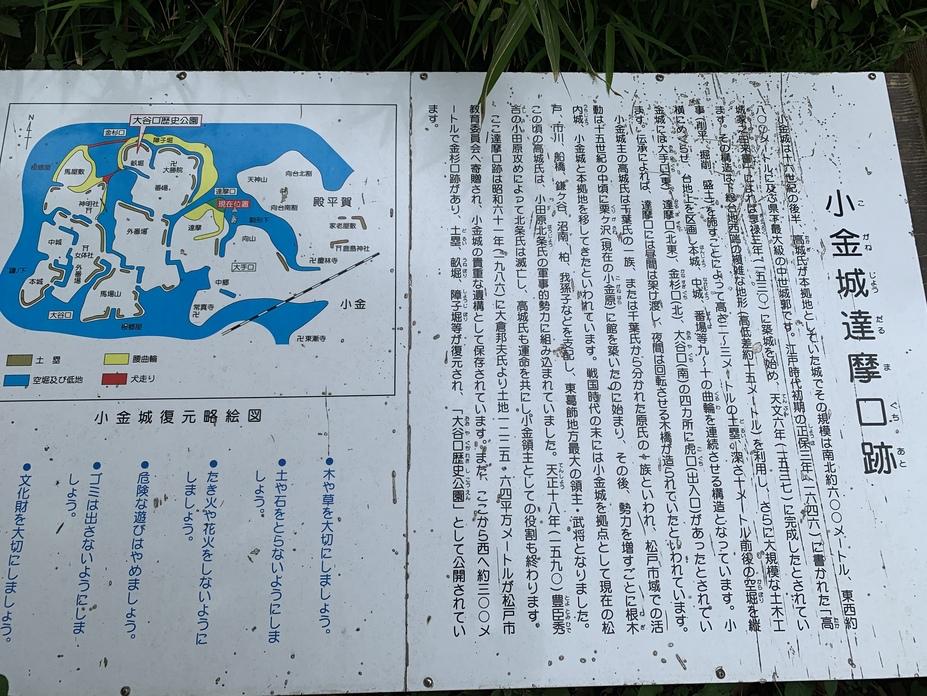 小金城達摩口跡
こがねじょうだるまぐちあと
小金城は十六世紀の後半、高城氏が本拠地としていた城でその規模は南北約六〇〇メートル、東西約
八〇〇メートルに及ぶ県本最大級の中世城郭です。江戸時代初期の正保三年(一六四六)に書かれた「高
城家之由来書」によれば享禄三年(一五三〇)に築城を始め、天文六年(一五三七)に完成したとされてい
ます。その構造は下総台地西端の複雑な地形(高低差約十五メートル)を利用し、さらに大規模な土木工
事(削平、掘削、盛土)を施すことによって高さ二～三メートルの土塁、深さ十メートル前後の空堀を縦
横にめぐらせ、台地上を区画し本城、中城、番場等九～十の曲輪を連続させる構造となっています。小
金城には大手口(東)、達摩口(北東)、金杉口(北)、大谷口(南)の四カ所に虎口(出入口)があったとされてい
ます。伝承によれば、達摩口には昼間は架け渡し、夜間は回転させる木橋が造られていたといわれています。
小金城主の高城氏は千葉氏の一族、または千葉氏から分かれた原氏の一族といわれ、松戸市域での活
動は十五世紀の中頃に栗ヶ沢(現在の小金原)に館を築いたのに始まり、その後、勢力を増すごとに根木
内城、小金城と本拠地を移してきたといわれています。戦国時代の末には小金城を拠点として現在の松
戸、市川、船橋、鎌ヶ谷、沼南、柏、我孫子などを支配し、東葛飾地方最大の領主・武将となりました。
この頃の高城氏は、小田原北条氏の軍事的勢力に組み込まれていました。天正十八年(一五九〇)豊臣秀
吉の小田原攻めによって北条氏は滅亡し、高城氏も運命を共にし小金領主としての役割も終わります。
ここ達摩口跡は昭和六十一年(一九八六)に大倉邦夫氏より土地一二二五・六四平方メートルが松戸市
教育委員会へ寄贈され、小金城の貴重な遺構として保存されています。また、ここから西へ約三〇〇メ
ートルで金杉口跡があり、土塁、畝堀、障子堀等が復元され、「大谷口歴史公園」として公開されてい
ます。
大谷口歴史公園
N
金杉口
障子堀
畝堀
大勝院
馬屋敷
番場
神明社
達摩口
現在位置
天神山
向台北割
向台南割
殿平賀
家老屋敷
鹿島神社
慶林寺
達摩
外番場
中城
女体社
外番場
本城
馬場山
大谷口
向山
大手口
中郷
常真寺
小金
東漸寺
土塁
腰曲輪
空堀及び低地
犬走り
小金城復元略絵図
●木や草を大切にしましょう。
●土や石をとらないようにしま
しょう。
●たき火や花火をしないように
しましょう。
●危険な遊びはやめましょう。
●ゴミは出さないようにしま
しょう。
●文化財を大切にしましょう。